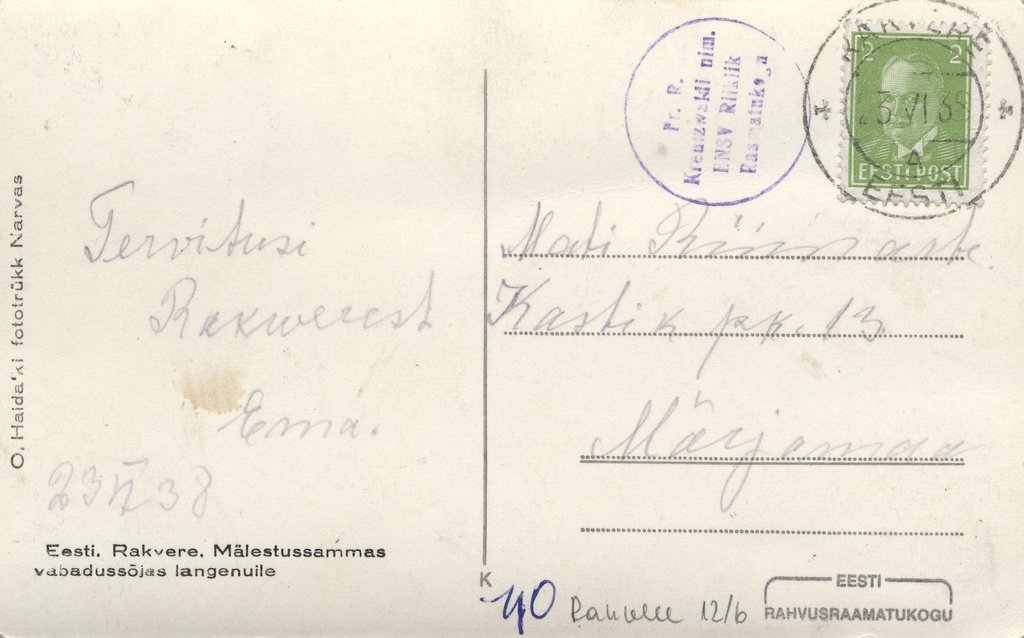 O. Haidak'i fototrükk Narvas
Tervitusi
Rakwerest
Ema.
23 VI 38
Eesti, Rakvere, Mälestussammas
vabadussõjas langenuile
K
Fr. R.
Kreutzwaldi nim.
ENSV Riiklik
Raamatukogu
2 2
EESTI POST
RAKVERE
23.VI 38
A
EESTI
Mati
Kastik pk. 13
Märjamaa
40 Rakvere 12/6
EESTI
RAHVUSRAAMATUKOGU